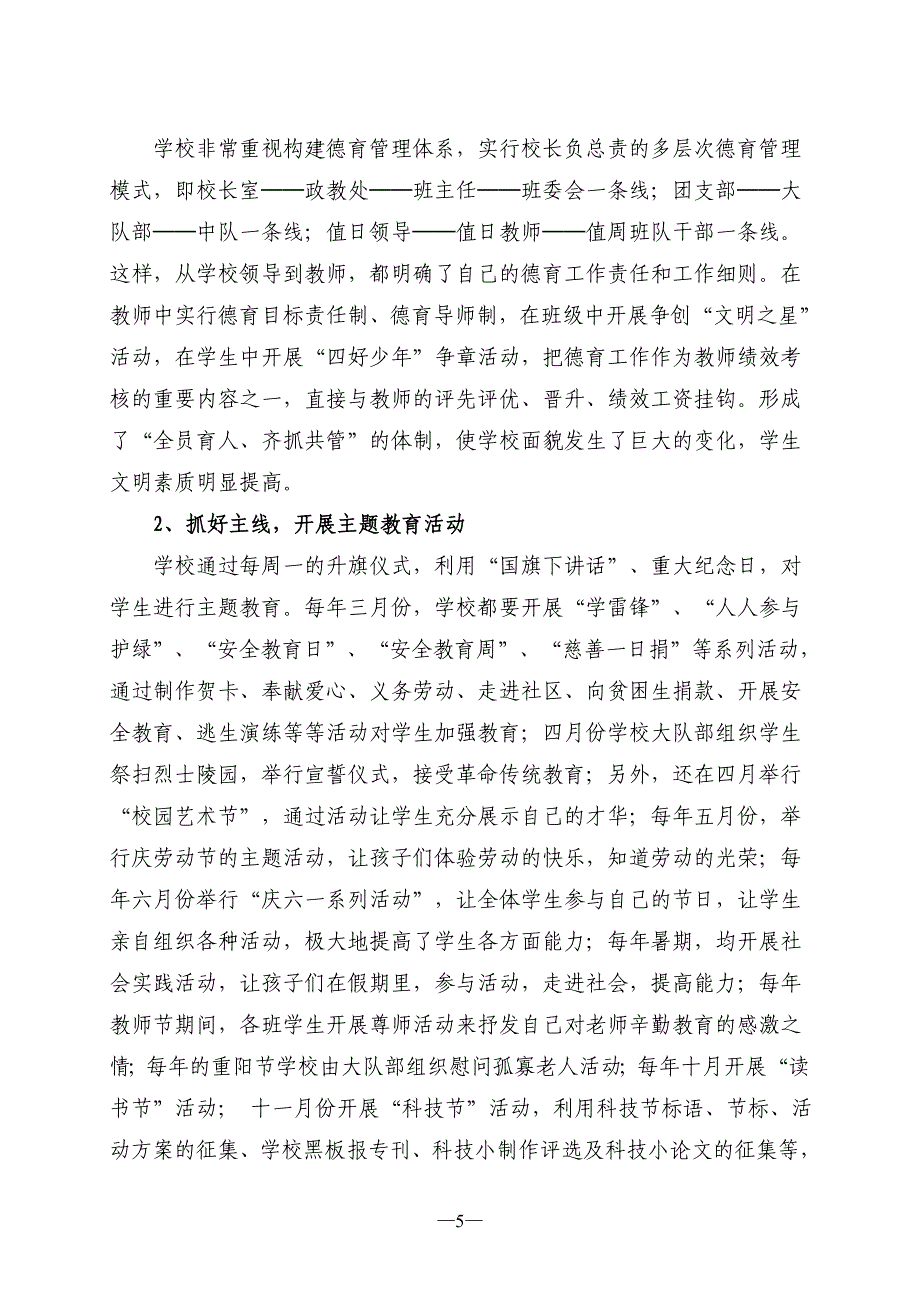 学校非常重视构建德育管理体系，实行校长负总责的多层次德育管理
模式，即校长室——政教处——班主任——班委会一条线；团支部——大
队部——中队一条线；值日领导——值日教师——值周班队干部一条线。
这样，从学校领导到教师，都明确了自己的德育工作责任和工作细则。在
教师中实行德育目标责任制、德育导师制，在班级中开展争创“文明之星”
活动，在学生中开展“四好少年”争章活动，把德育工作作为教师绩效考
核的重要内容之一，直接与教师的评先评优、晋升、绩效工资挂钩。形成
了“全员育人、齐抓共管”的体制，使学校面貌发生了巨大的变化，学生
文明素质明显提高。
2、抓好主线，开展主题教育活动
学校通过每周一的升旗仪式，利用“国旗下讲话”、重大纪念日，对
学生进行主题教育。每年三月份，学校都要开展“学雷锋”、“人人参与
护绿”、“安全教育日”、“安全教育周”、“慈善一日捐”等系列活动，
通过制作贺卡、奉献爱心、义务劳动、走进社区、向贫困生捐款、开展安
全教育、逃生演练等等活动对学生加强教育；四月份学校大队部组织学生
祭扫烈士陵园，举行宣誓仪式，接受革命传统教育；另外，还在四月举行
“校园艺术节”，通过活动让学生充分展示自己的才华；每年五月份，举
行庆劳动节的主题活动，让孩子们体验劳动的快乐，知道劳动的光荣；每
年六月份举行“庆六一系列活动”，让全体学生参与自己的节日，让学生
亲自组织各种活动，极大地提高了学生各方面能力；每年暑期，均开展社
会实践活动，让孩子们在假期里，参与活动，走进社会，提高能力；每年
教师节期间，各班学生开展尊师活动来抒发自己对老师辛勤教育的感激之
情；每年的重阳节学校由大队部组织慰问孤寡老人活动；每年十月开展“读
书节”活动； 十一月份开展“科技节”活动，利用科技节标语、节标、活
动方案的征集、学校黑板报专刊、科技小制作评选及科技小论文的征集等，
—5—